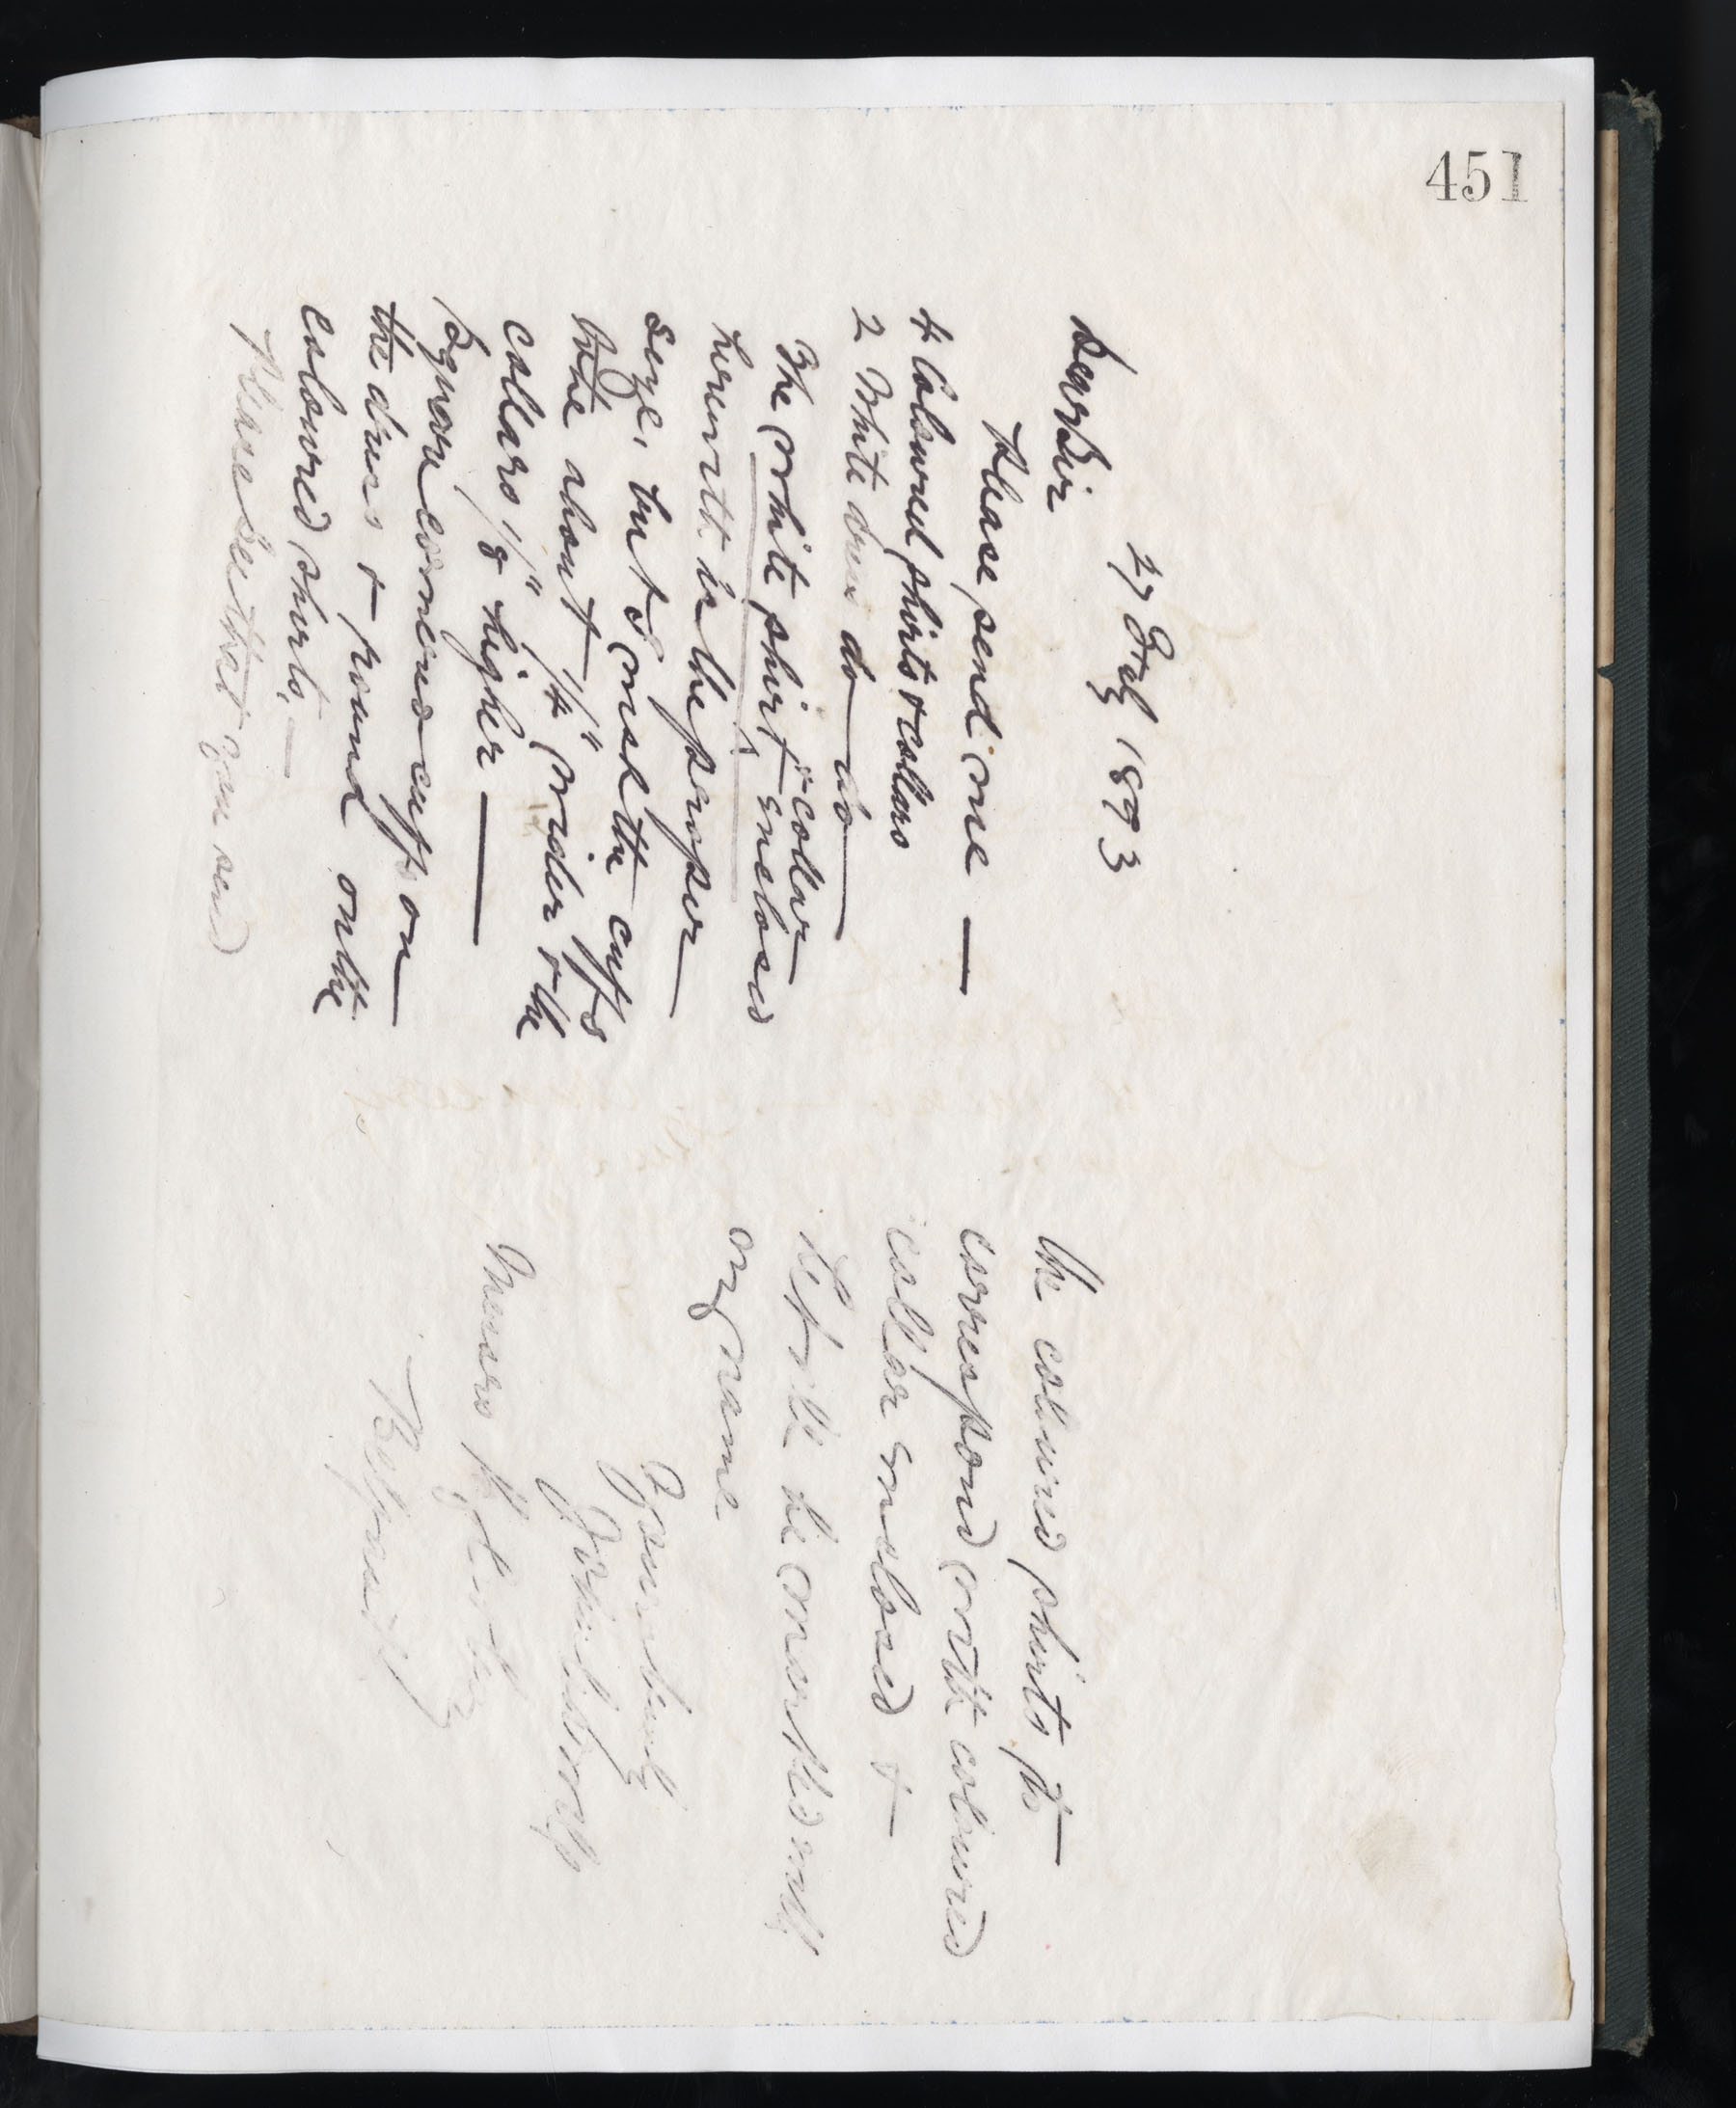 451
27 July 1893
Dear Sir
Please send me —
4 Coloured shirts & collars
2 White dress do — do —
The white shirt & collar
enclosed
herewith is the proper
size, but I wish the cuffs
to be about 1/4" wider & the
collars 1/8" higher —
Square corners cuffs on
the dress & round on the
coloured shirts. —
Please see that you send
the coloured shirts to
correspond with coloured
collar enclosed &
let all be marked with
my name
Yours truly
Messrs
Belfast